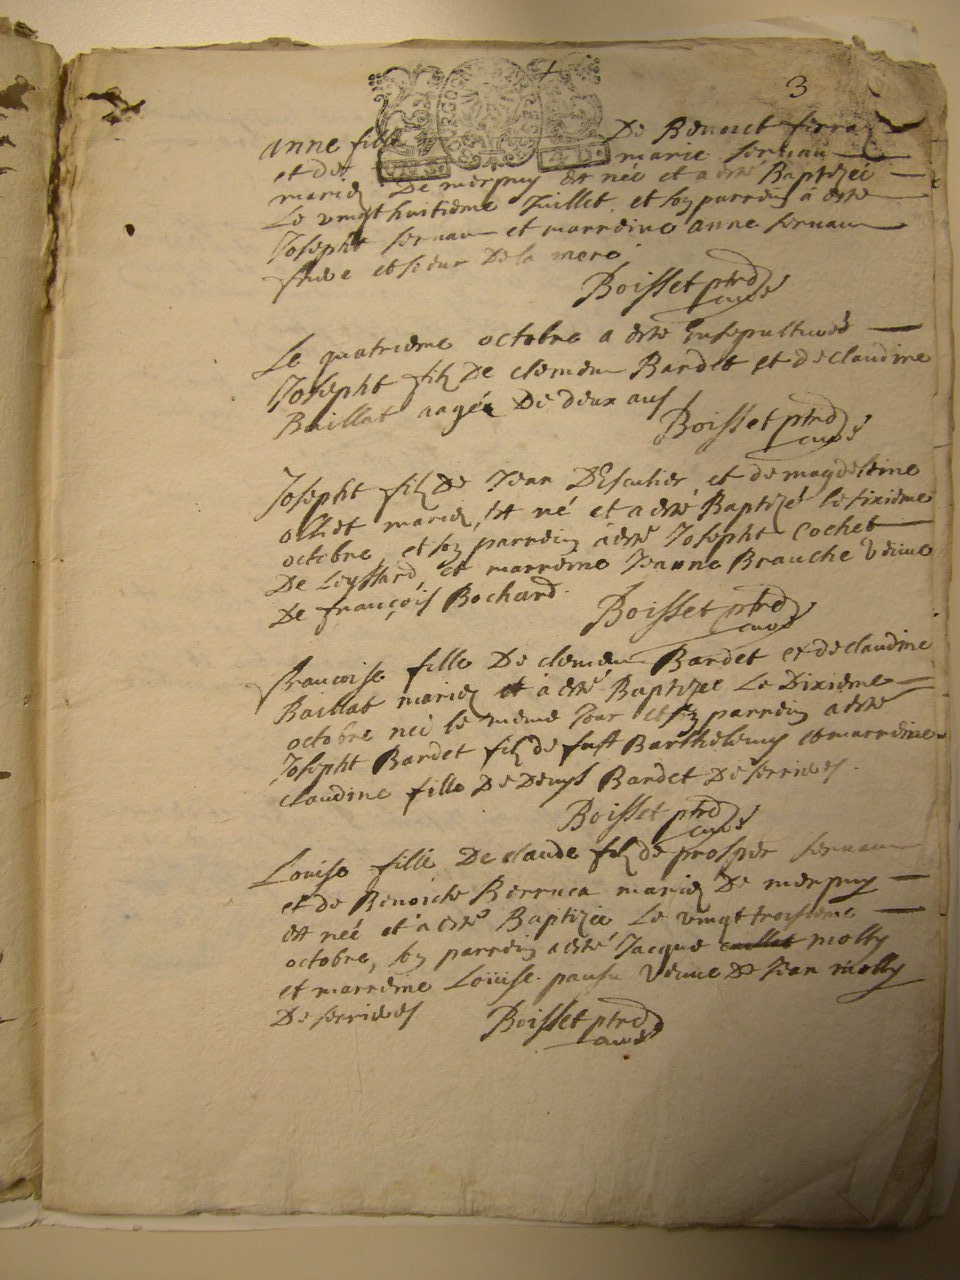 3
anne fille De Benoict ferra
et de marie servan
mariez De merpuy est née et a esté Baptizée
Le vingt huitieme Juillet et so parrein a esté
Josepht servan et marreine anne servan
et soeur De la mere
Boisset ptrd
curé
Le quatrieme octobre a esté Ensepulturé
Josepht filz De clemen Bardet et de claudine
Baillat aagée De deux ans
Boisset ptrd
curé
Josepht filz De Jean DEscutier et de magdeleine
olliet mariez, est né et a esté Baptizé le sixieme
octobre, et so parrein a esté Josepht Cochet
De Leyssard, et marreine Jeanne Brauche veuve
De françois Bochard.
Boisset ptrd
curé
francoise fille De clemen Bardet et de claudine
Baillat mariez et a esté Baptizée Le Dixieme
octobre née le meme Jour et so parrein a esté
Josepht Bardet filz de fust Barthelemy et marreine
claudine fille De Denys Bardet De serrieres.
Boisset ptrd
curé
Louise fille De claude filz de prosper servan
et de Benoicte Berruca mariez De merpuy
est née et a esté Baptizée Le vingt troisieme
octobre, so parrein a esté Jacque molly
et marreine Louise veuve De Jean molly
De serrieres
Boisset ptrd
curé